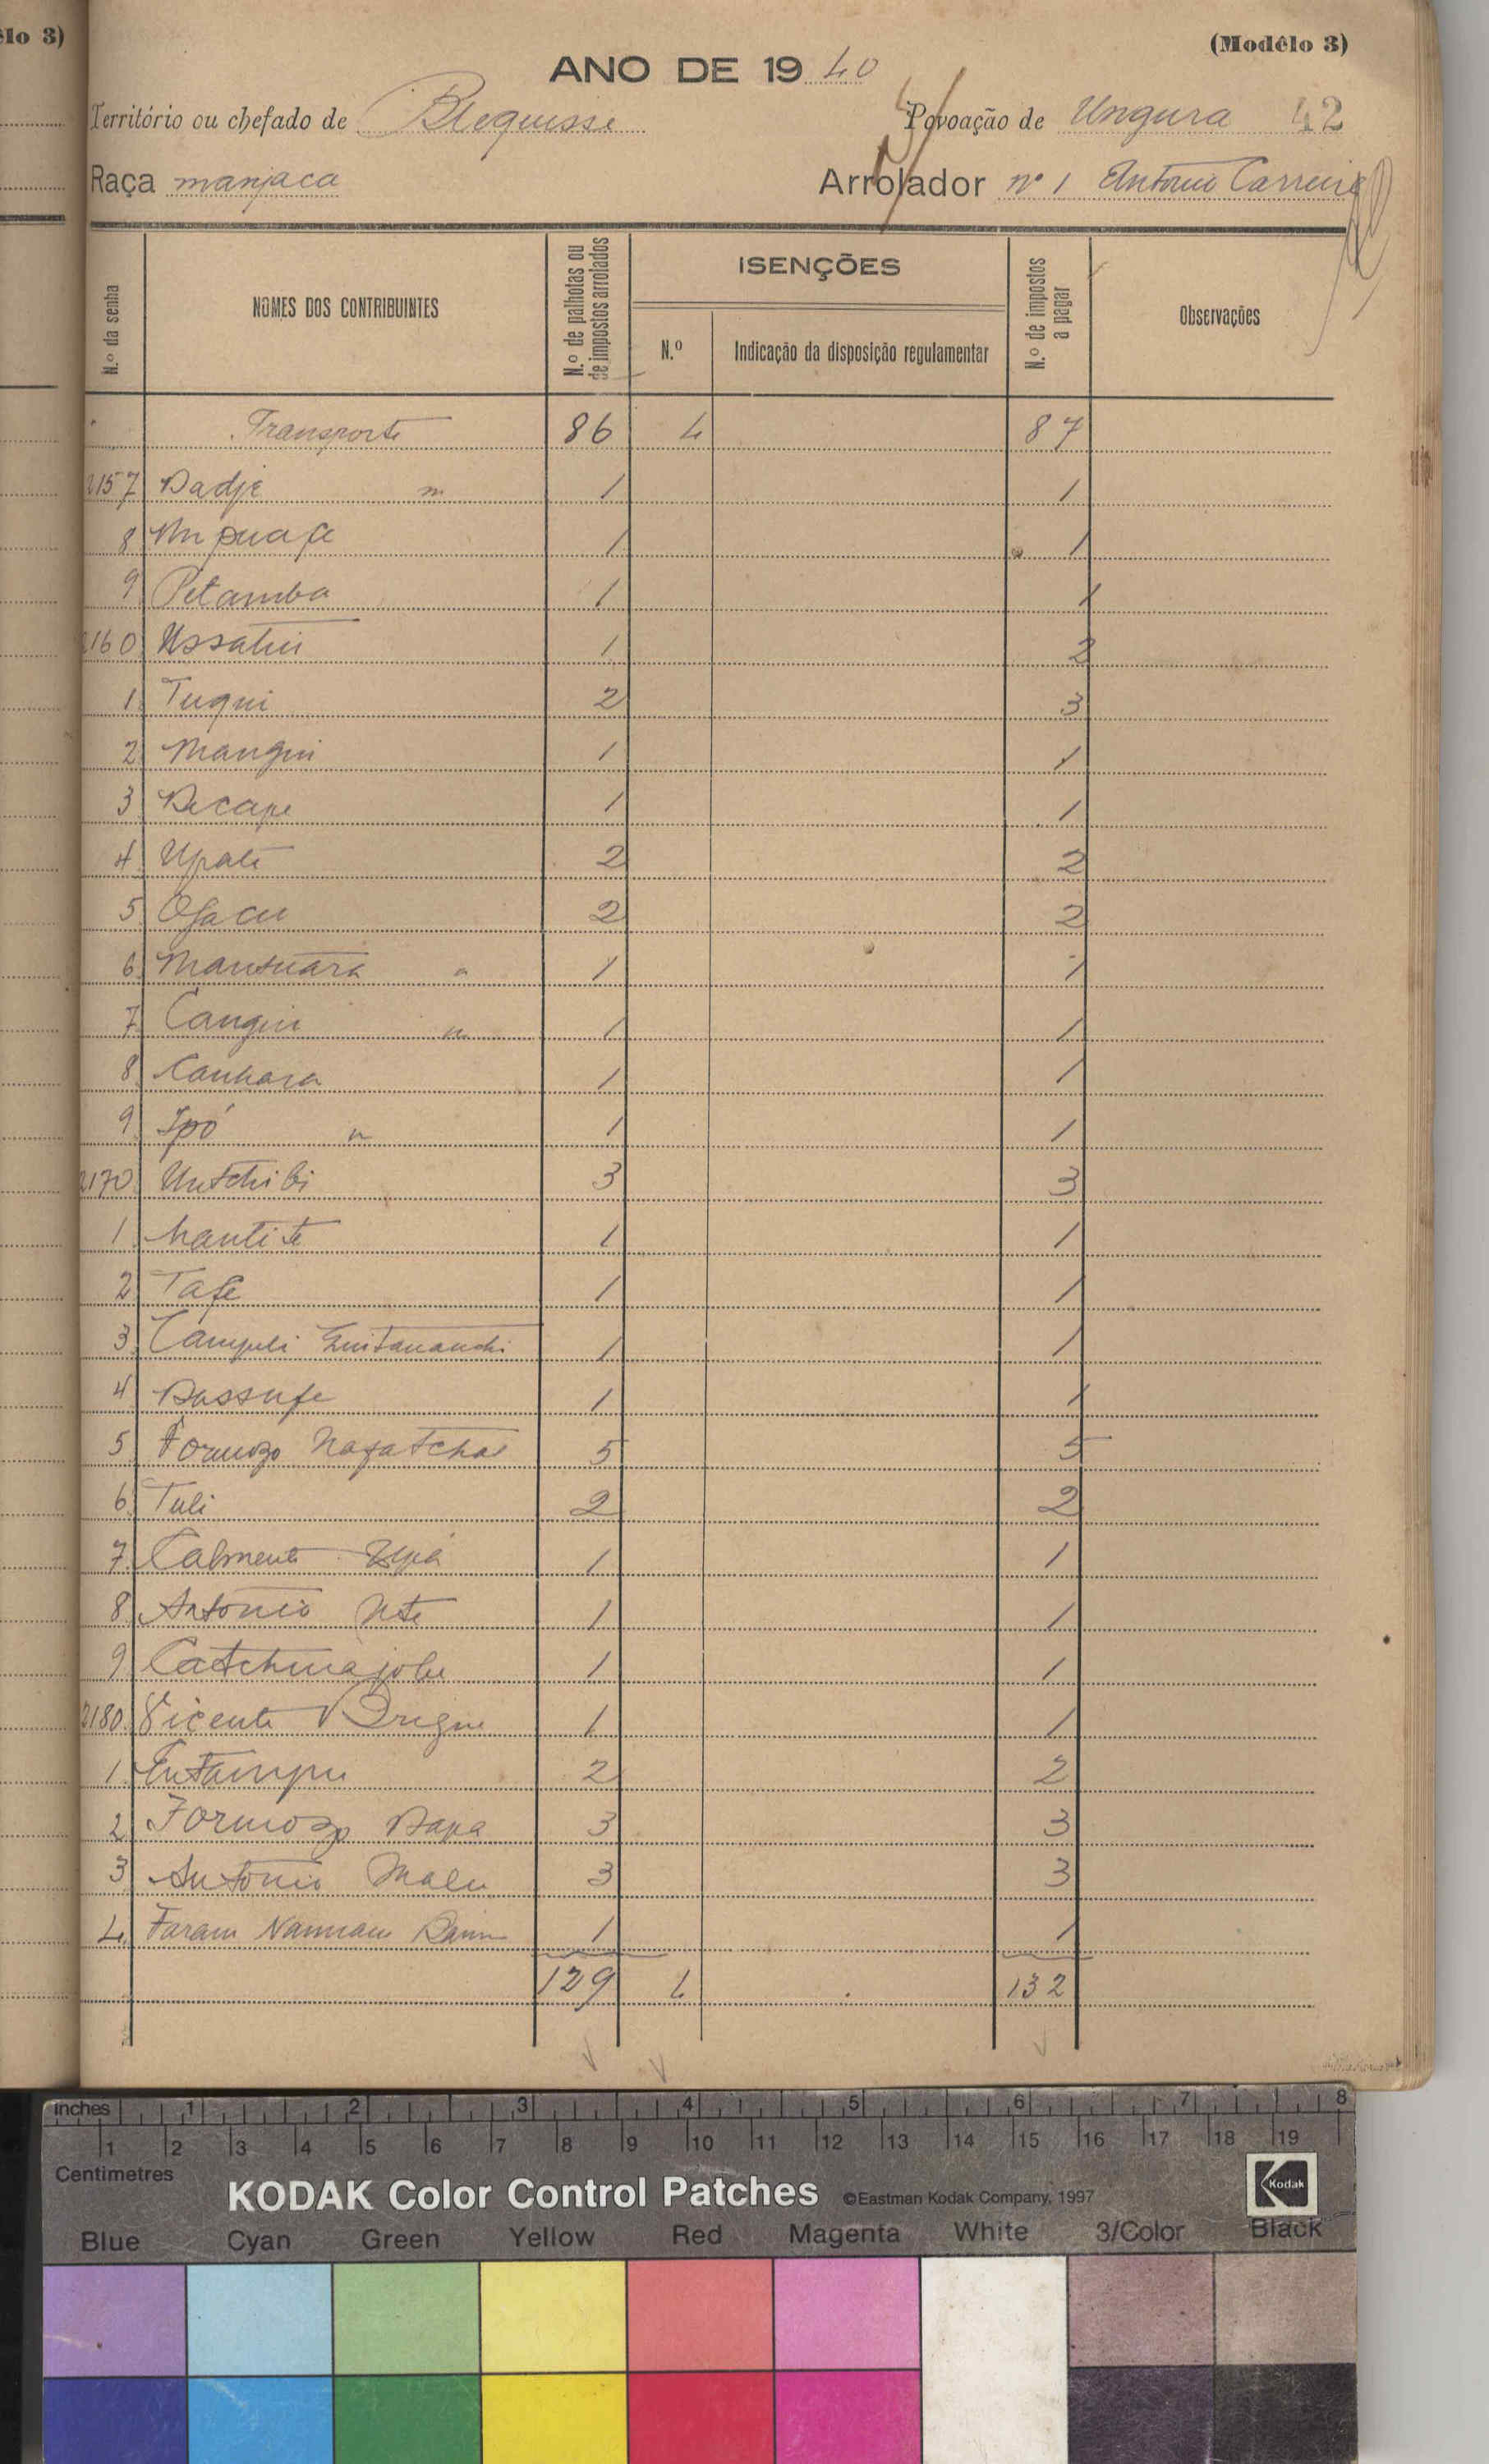 êlo 3)
(Modêlo 3)
ANO DE 19 40
Território ou chefado de Blequisse Povoação de Ungura 42
Raça manjaca Arrolador nº 1 Antonio Carreira
N.º da senha NOMES DOS CONTRIBUINTES N.º de palhotas ou de impostos arrolados ISENÇÕES N.º de impostos a pagar Observações
N.º Indicação da disposição regulamentar
Transporte 86 4 87
2157 Dadje 1 1
8 1 1
9 Petamba 1 1
2160 Ussatin 1 2
1 Tuqui 2 3
2 Mangui 1 1
3 Decape 1 1
4 Upate 2 2
5 Ofacu 2 2
6 Mantuara 1 1
7 Cangui 1 1
8 Canhara 1 1
9 Ipó 1 1
2170 Untchibi 3 3
1 Nantite 1 1
2 Tafe 1 1
3 Campuli 1 1
4 Dussufe 1 1
5 Formozo 5 5
6 Tuli 2 2
7 1 1
8 Antonio Nte 1 1
9 1 1
2180 Vicente Brigue 1 1
1 2 2
2 Formozo Dapa 3 3
3 Antonio Malu 3 3
4 1 1
129 4 132
inches 1 2 3 4 5 6 7 8
1 2 3 4 5 6 7 8 9 10 11 12 13 14 15 16 17 18 19
Centimetres
KODAK Color Control Patches ©Eastman Kodak Company, 1997 Kodak
Blue Cyan Green Yellow Red Magenta White 3/Color Black